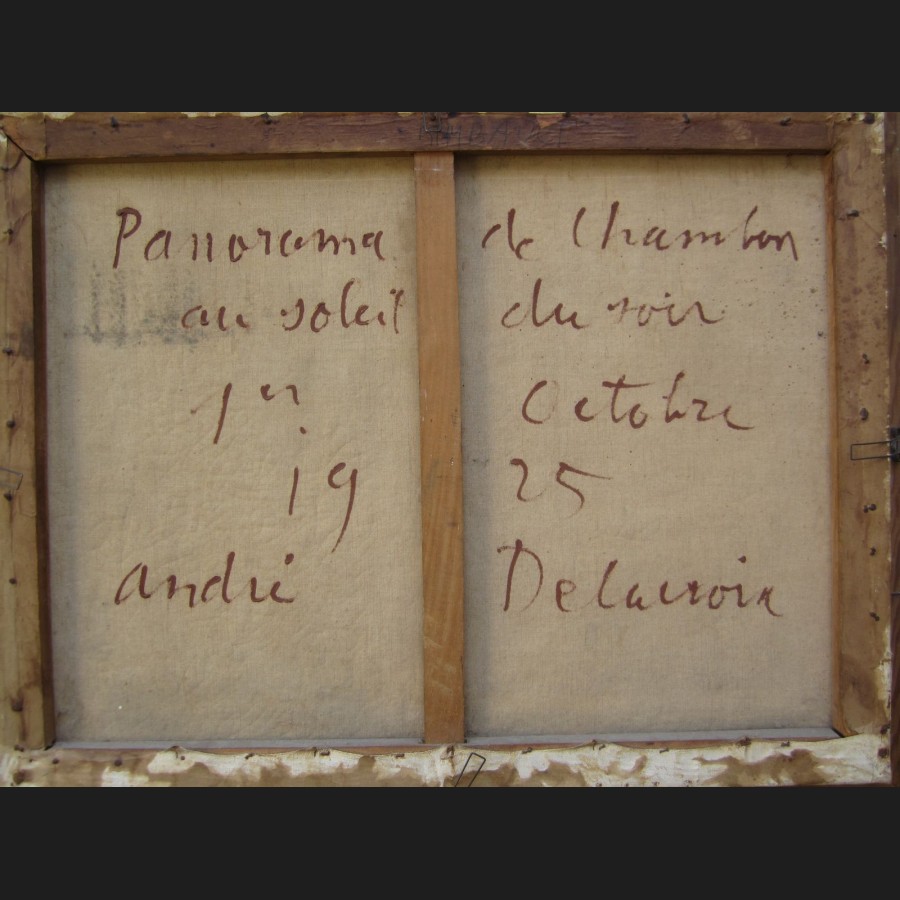 Panorama de Chambon
au soleil du soir
1er Octobre
19 25
andré Delacroix